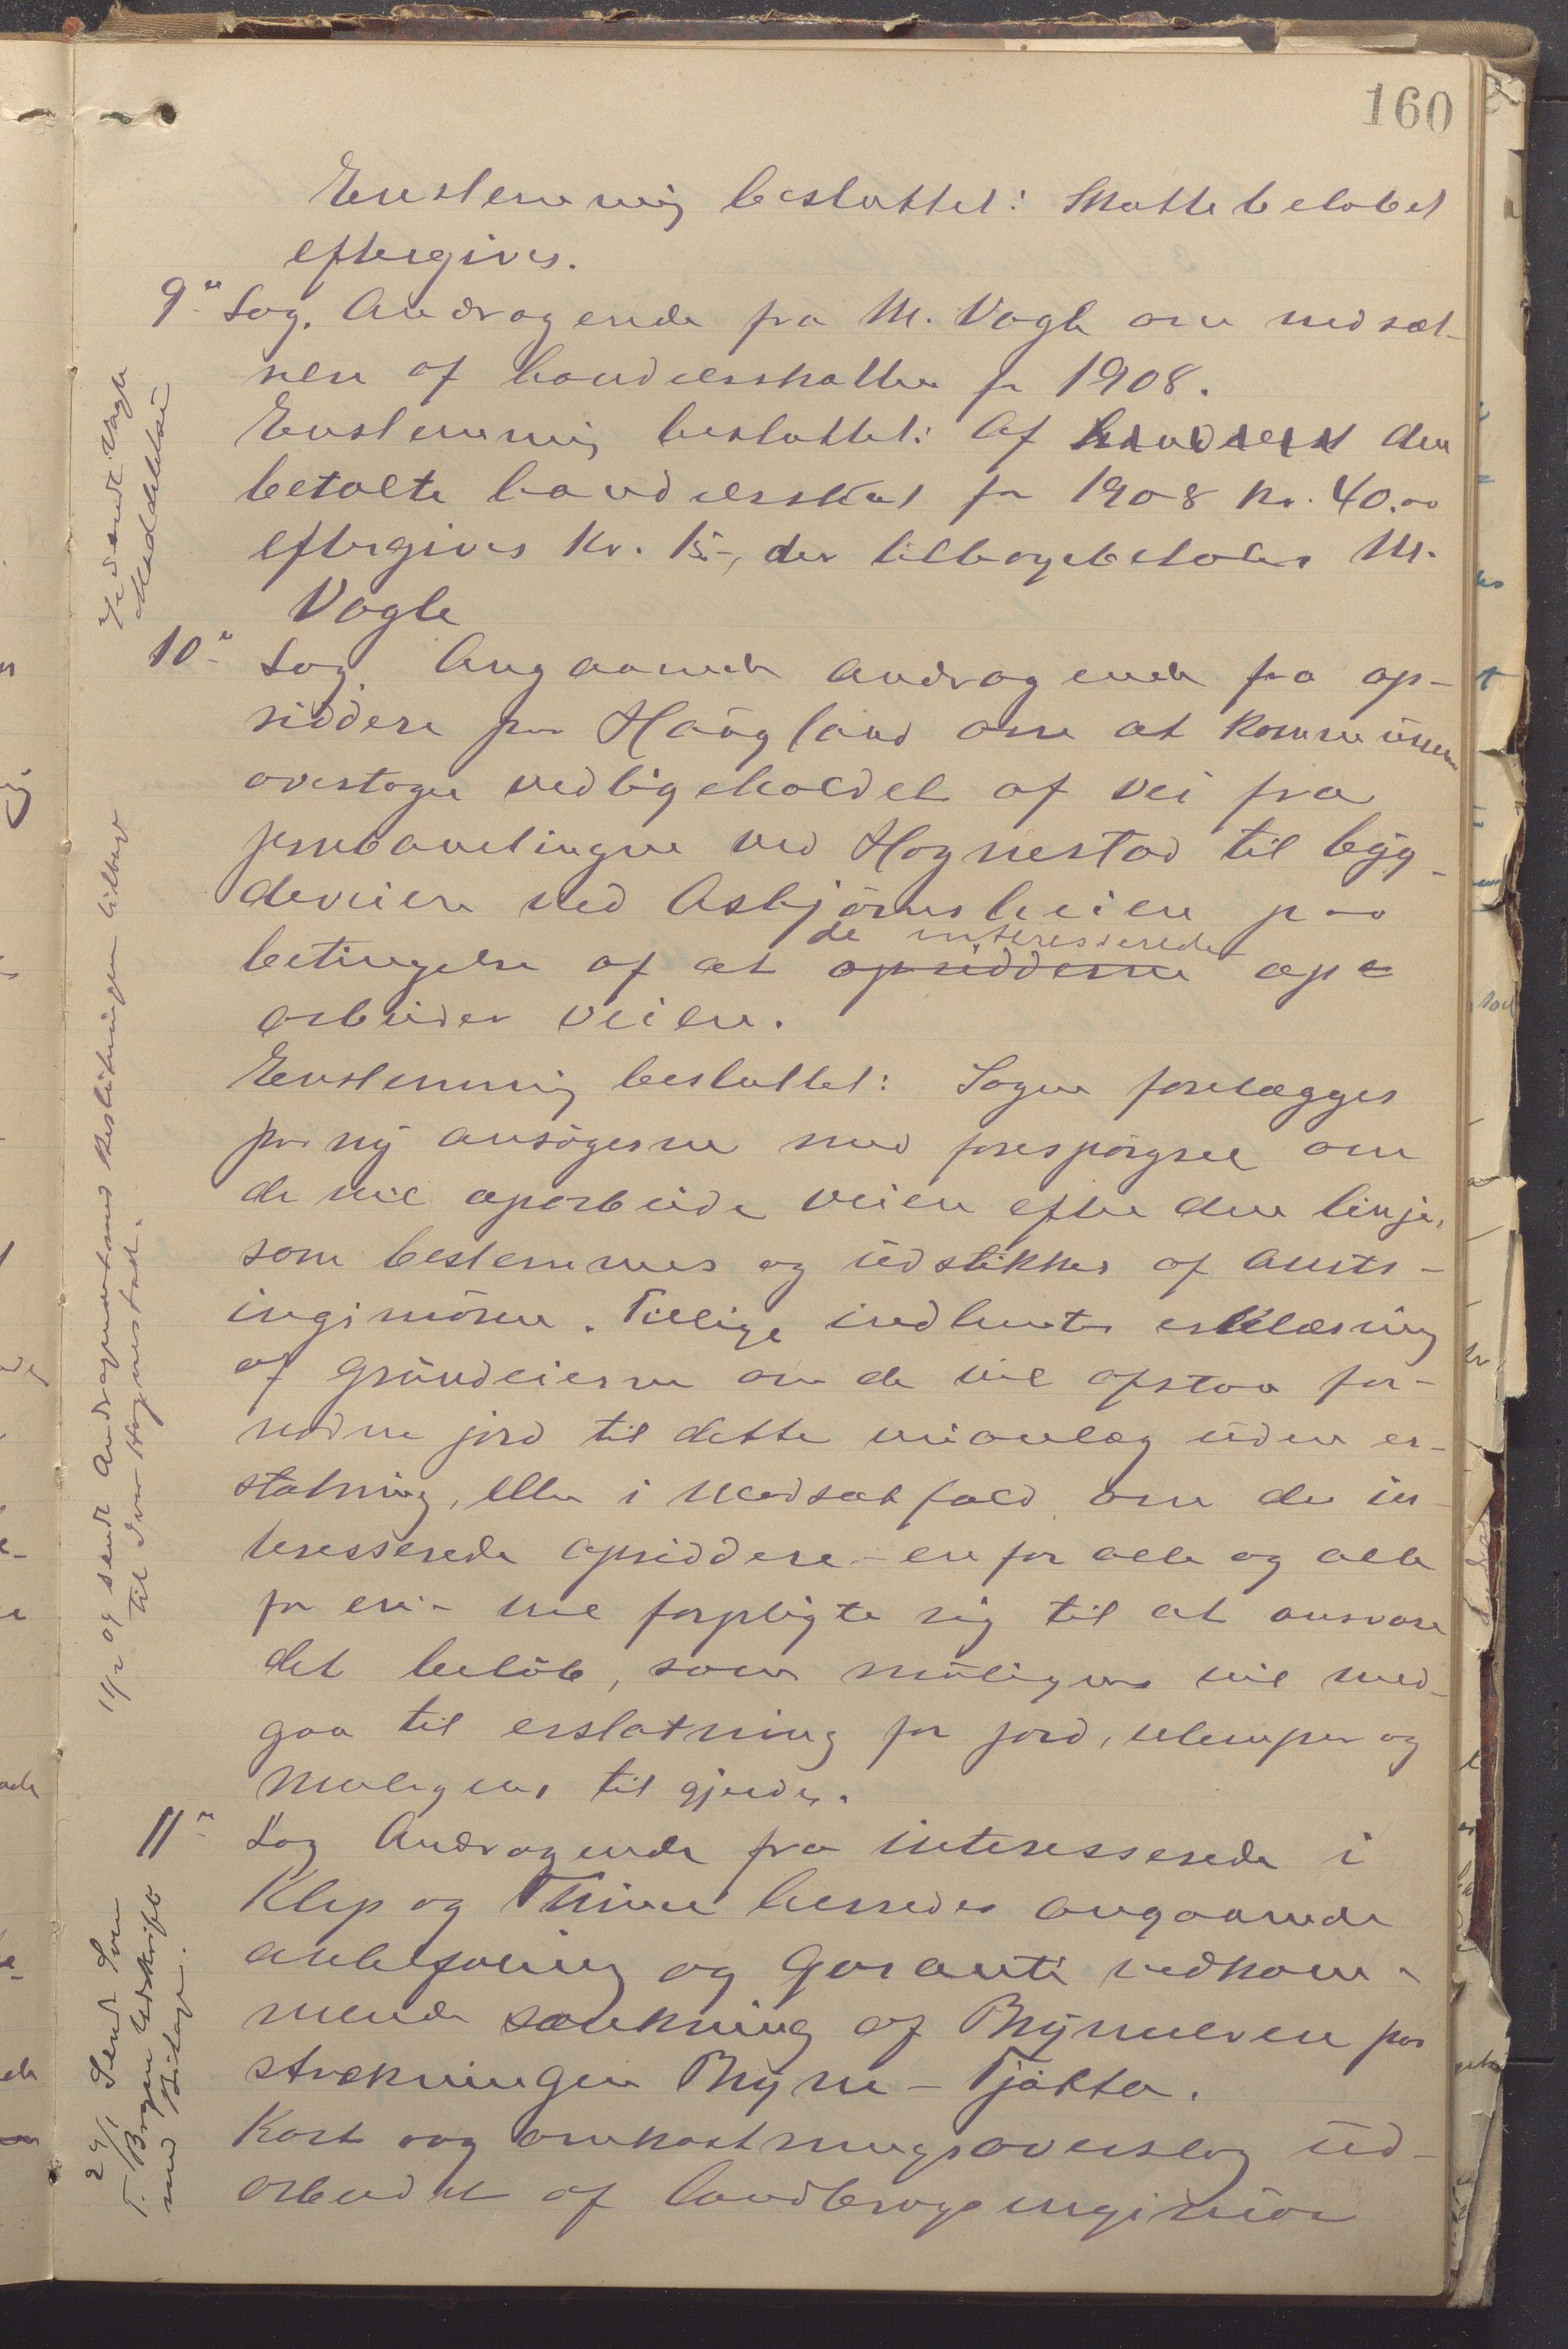 160
Enstemmig besluttet: Skattebeløbet
eftergives.
9de Sag. Andragende fra M. Vagle om nedsæt-
telse af handelsskatten for 1908.
Enstemmig besluttet: Af den
betalte handelsskat for 1908 kr. 40.00
eftergives Kr. 15-, der tilbagebetales M.
Vagle
10de Sag. Angaaende andragende fra op-
siddere paa Haugland om at kommunen
overtager vedligeholdet af vei fra
jernbanelinjen ved Hognestad til byg-
deveien ved Asbjørnsheien paa
betingelse af at opsidderne de interesserede op-
arbeider veien.
Enstemmig besluttet: Sagen forelægges
paa ny ansøgerne med forespørgsel om
de vil oparbeide veien efter den linje,
som bestemmes og udstikkes af amts-
ingeniøren. Tillige indhentes erklæring
af grundeierne om de vil afstaa for-
nøden jord til dette veianlæg uden er-
statning, eller i modsat fald om de in-
teresserede opsiddere – en for alle og alle
for en – vil forpligte sig til at ansvare
det beløb, som muligens vil med-
gaa til erstatning for jord, ulemper og
muligens til gjerder.
11te Sag Andragende fra interesserede i
Klep og Thime herreder angaaende
anbefaling og garanti vedkom-
mende sænkning af Bryneelven paa
strækningen Bryne – Tjøtta.
Kart og omkostningsoverslag ud-
arbeidet af landbrugsingeniør
sendt Vagle
Meddelelse
11/2 09 sendt Andragendet med Beslutningen tilbage
til Ivar Hognestad.
29/1 Sendt Sven
T. Bryne Udskrift
med Bilage.